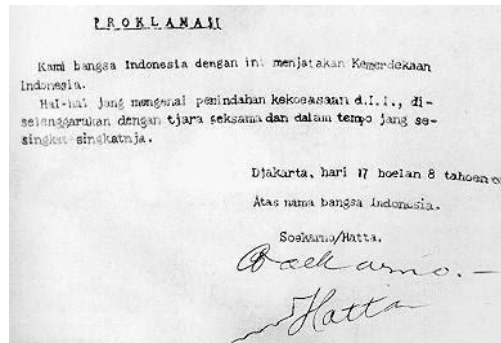 PROKLAMASI
Kami bangsa Indonesia dengan ini menjatakan Kemerdekaan
Indonesia.
Hal-hal jang mengenai pemindahan kekoeasaan d.l.l., di-
selenggarakan dengan tjara seksama dan dalam tempo jang se-
singkat-singkatnja.
Djakarta, hari 17 boelan 8 tahoen 0
Atas nama bangsa Indonesia.
Soekarno/Hatta.
Soekarno.-
Hatta